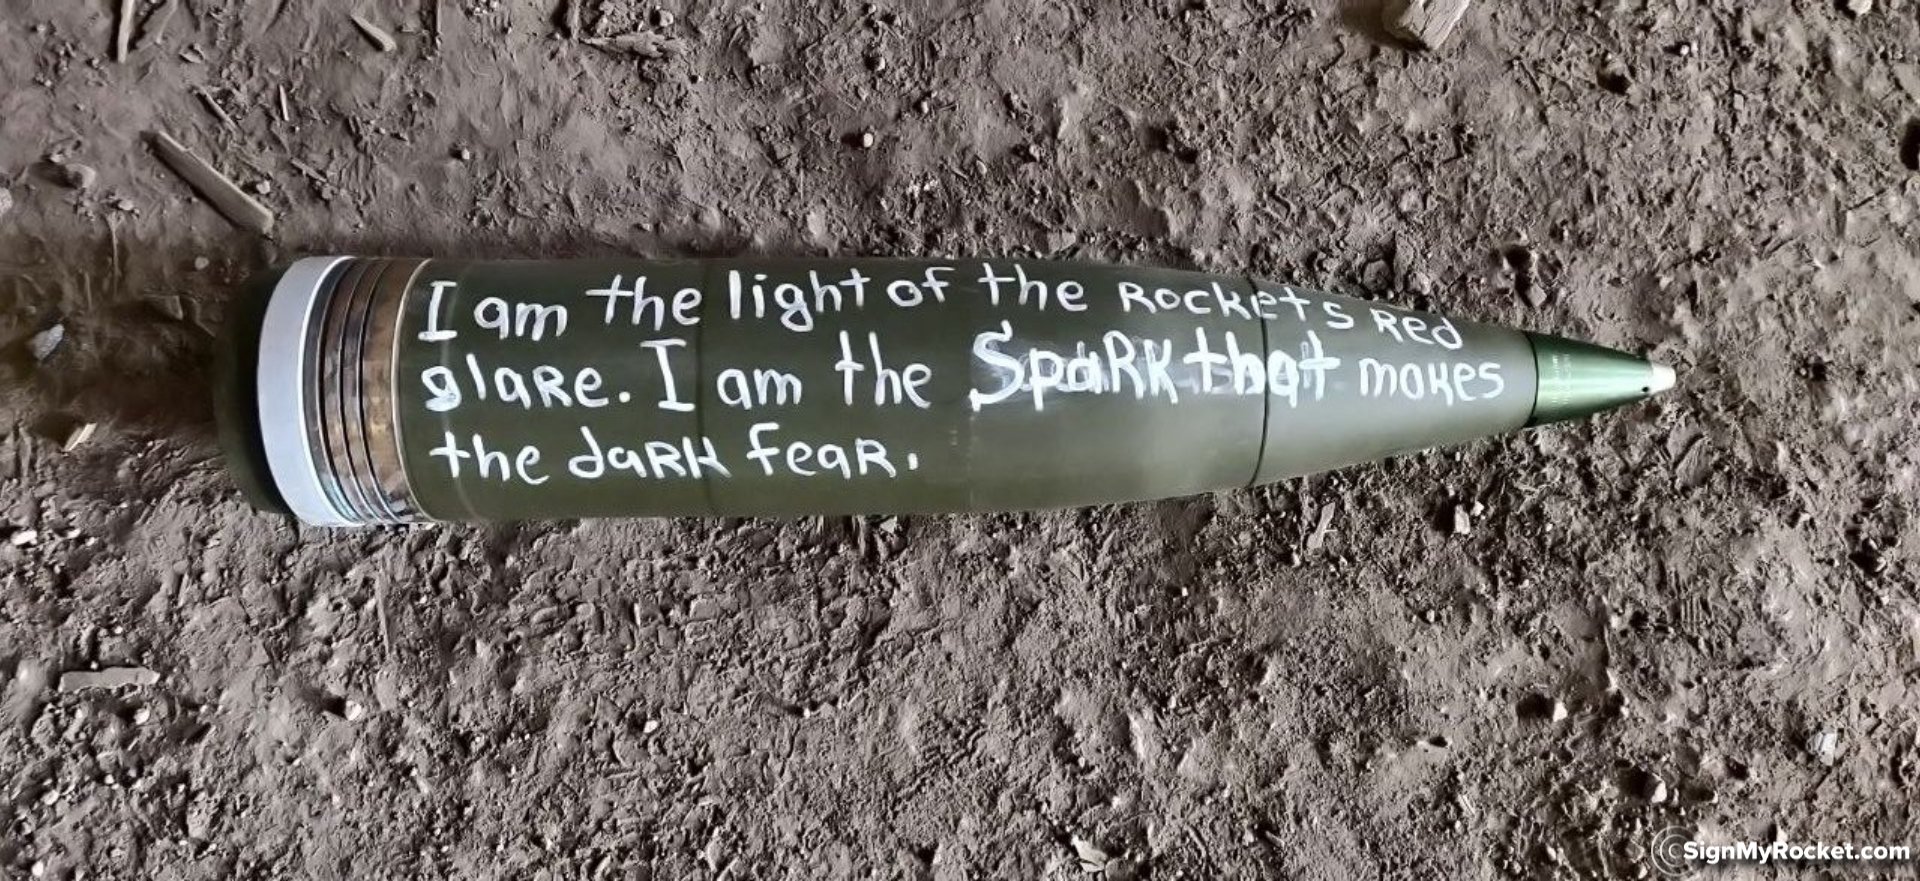 I am the light of the Rockets Red
glaRe. I am the SpaRK that makes
the daRK feaR.
SignMyRocket.com